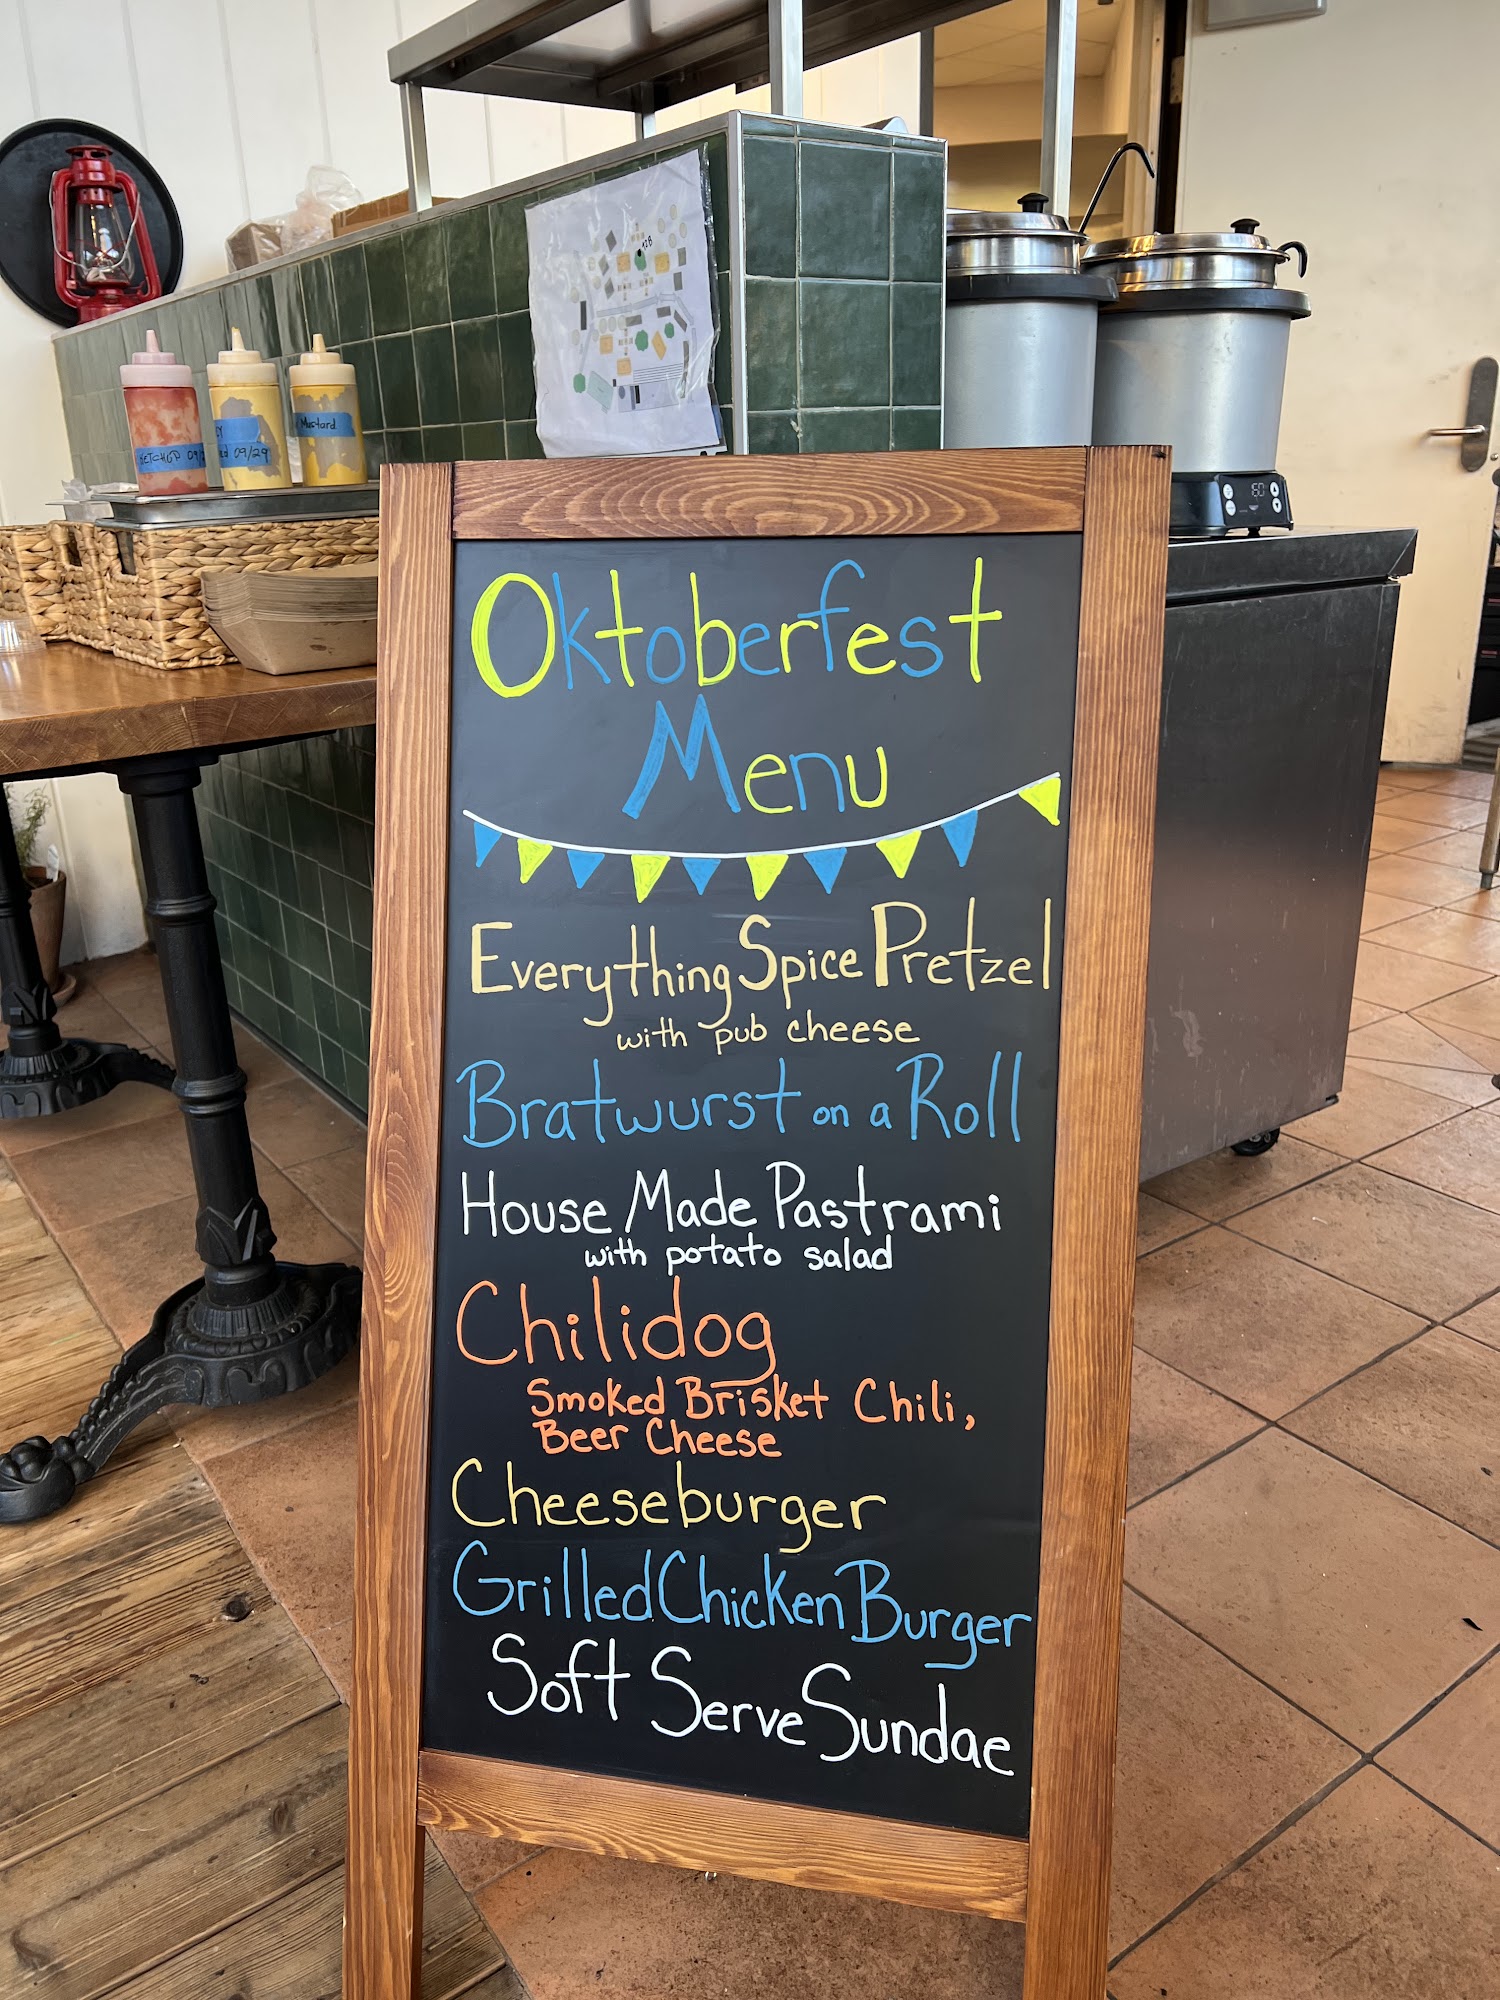 KETCHUP 09/2
EY
ed 09/29
Mustard
12B
160
Oktoberfest
Menu
Everything Spice Pretzel
with pub cheese
Bratwurst on a Roll
House Made Pastrami
with potato salad
Chilidog
Smoked Brisket Chili,
Beer Cheese
Cheeseburger
Grilled Chicken Burger
Soft Serve Sundae